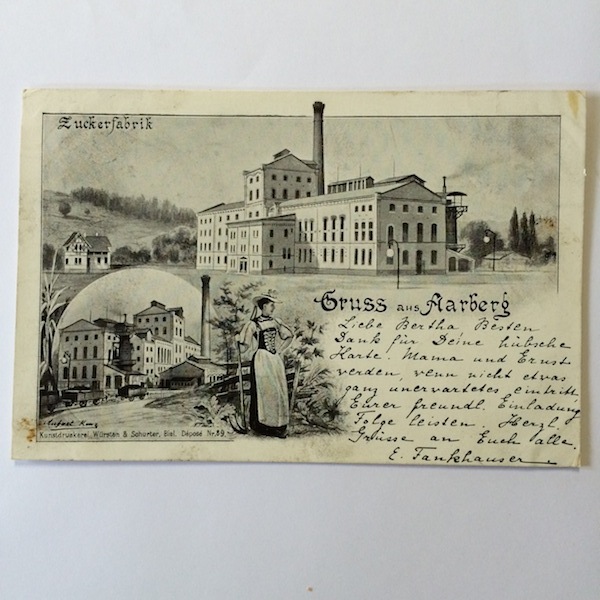 Zuckerfabrik
Gruss aus Aarberg
Liebe Bertha. Besten
Dank für Deine hübsche
Karte. Mama und Ernst
werden, wenn nicht etwas
ganz unerwartetes eintritt,
Eurer freundl. Einladung
Folge leisten. Herzl.
Grüsse an Euch alle.
E. Fankhauser
Kunstdruckerei Würsten & Schurter, Biel. Déposé Nr. 69.